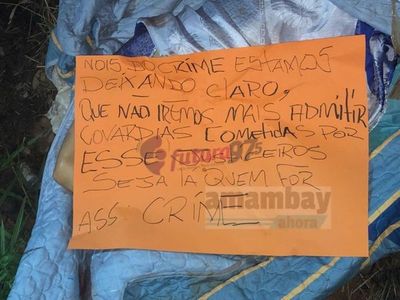 NOIS DO CRIME ESTAMOS
DEIXANDO CLARO,
QUE NAO IREMOS MAIS ADMITIR
COVARDIAS COMETIDAS POR
ESSE
futura 97.5
SEJA LA QUEM FOR
amambay
ahora
ASS CRIME